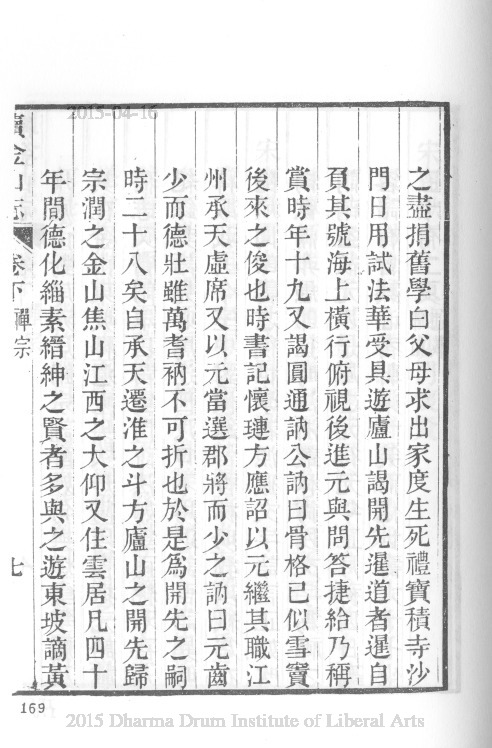 2015-04-16
之盡捐舊學白父母求出家度生死禮寶積寺沙
門日用試法華受具遊廬山謁開先暹道者暹自
負其號海上橫行俯視後進元與問答捷給乃稱
賞時年十九又謁圓通訥公訥曰骨格已似雪竇
後來之俊也時書記懷璉方應詔以元繼其職江
州承天虛席又以元當選郡將而少之訥曰元齒
少而德壯雖萬耆衲不可折也於是為開先之嗣
時二十八矣自承天遷淮之斗方廬山之開先歸
宗潤之金山焦山江西之大仰又住雲居凡四十
年間德化緇素縉紳之賢者多與之遊東坡謫黃
續金山志 卷下 禪宗 七
169
2015 Dharma Drum Institute of Liberal Arts